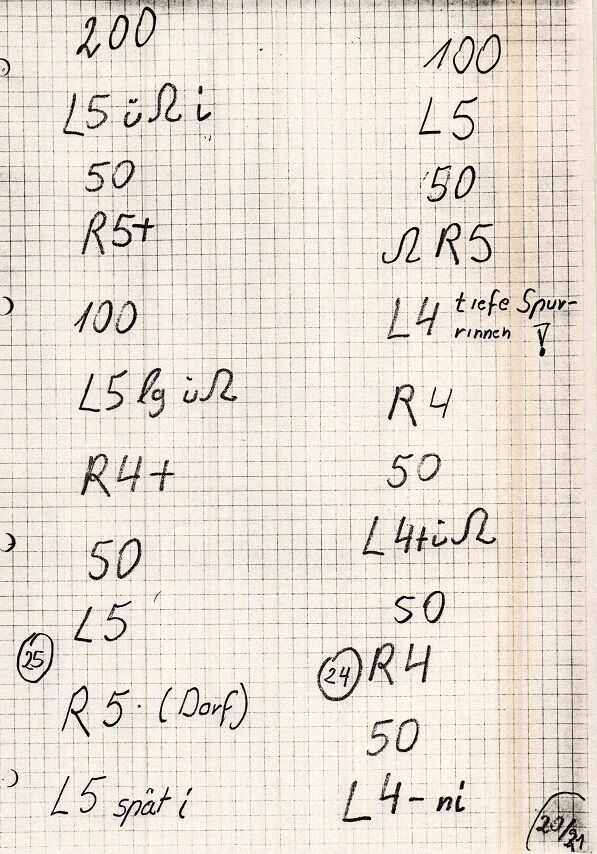 200
L5 ü Ω i
50
R5+
100
L5 lg ü Ω
R4+
50
L5
25
R5 (Dorf)
L5 spät i
100
L5
50
Ω R5
L4 tiefe Spur-
rinnen !
R4
50
L4+ ü Ω
50
24 R4
50
L4- ni
20/21